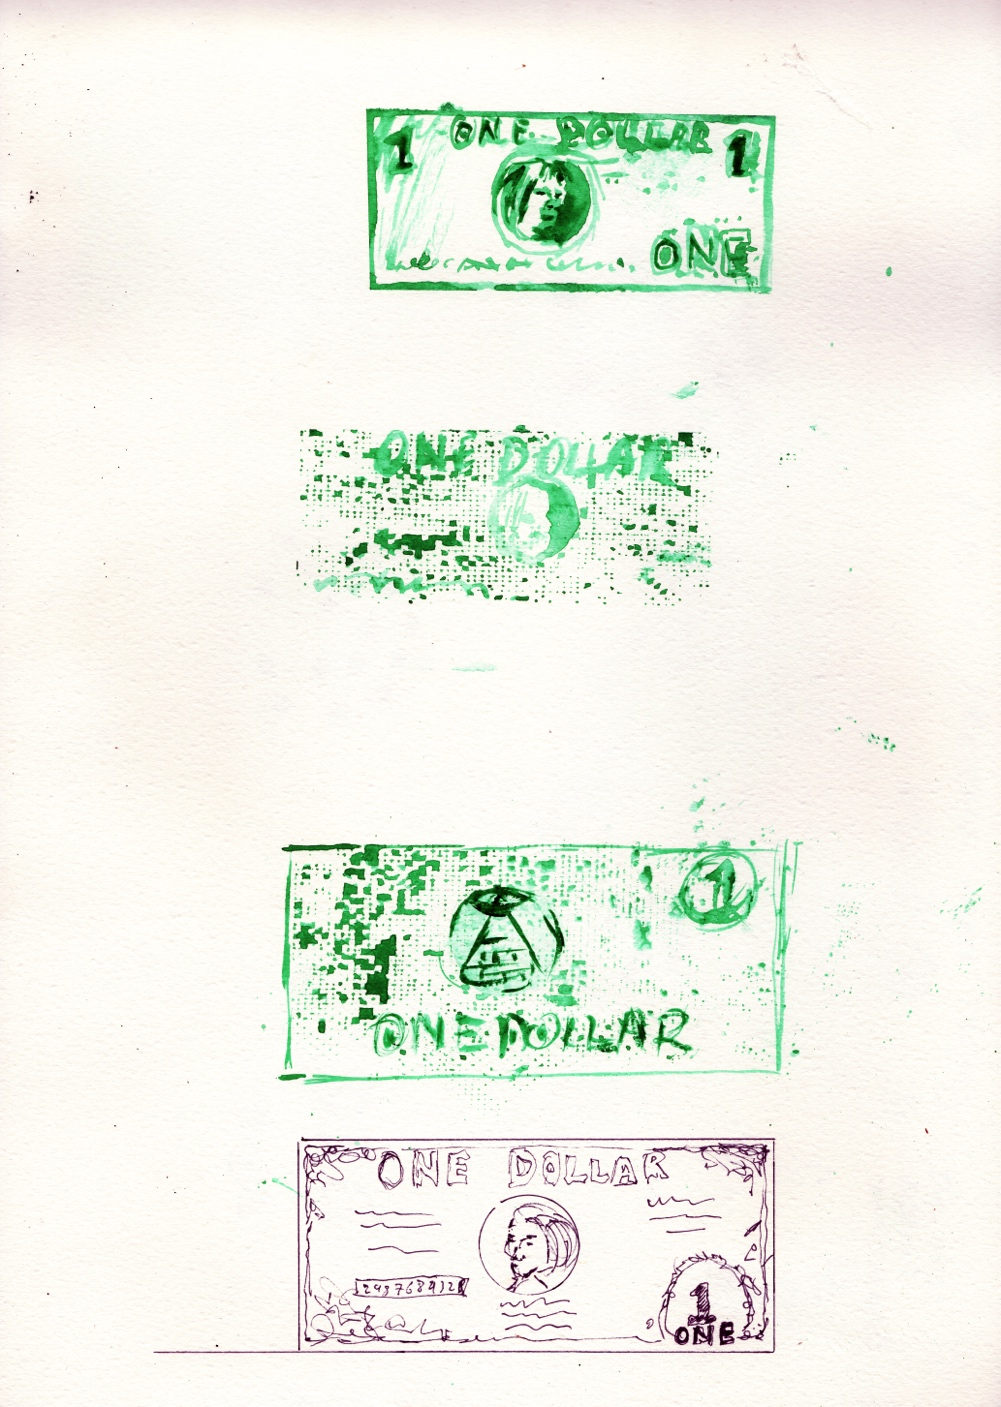 1 ONE DOLLAR 1
ONE
ONE DOLLAR
1
ONE DOLLAR
ONE DOLLAR
1
ONE